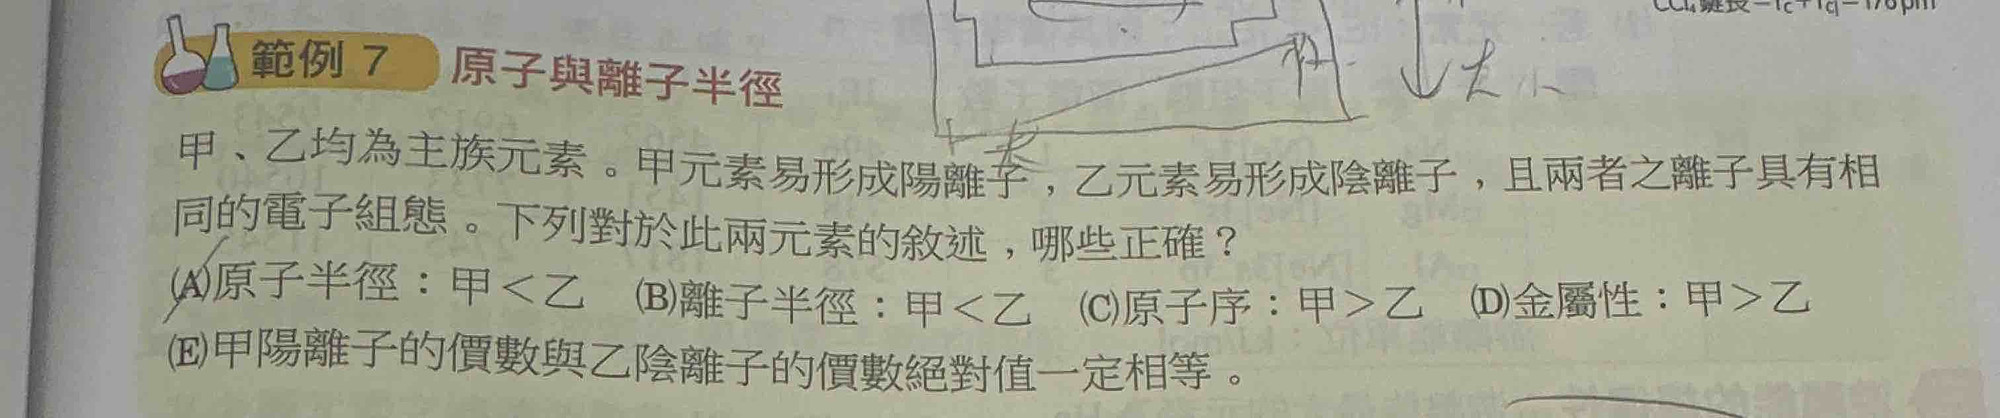 CCl₄鍵長=rc+rcl=176pm
範例 7 原子與離子半徑
大小
甲、乙均為主族元素。甲元素易形成陽離子，乙元素易形成陰離子，且兩者之離子具有相
同的電子組態。下列對於此兩元素的敘述，哪些正確？
(A)原子半徑：甲＜乙 (B)離子半徑：甲＜乙 (C)原子序：甲＞乙 (D)金屬性：甲＞乙
(E)甲陽離子的價數與乙陰離子的價數絕對值一定相等。